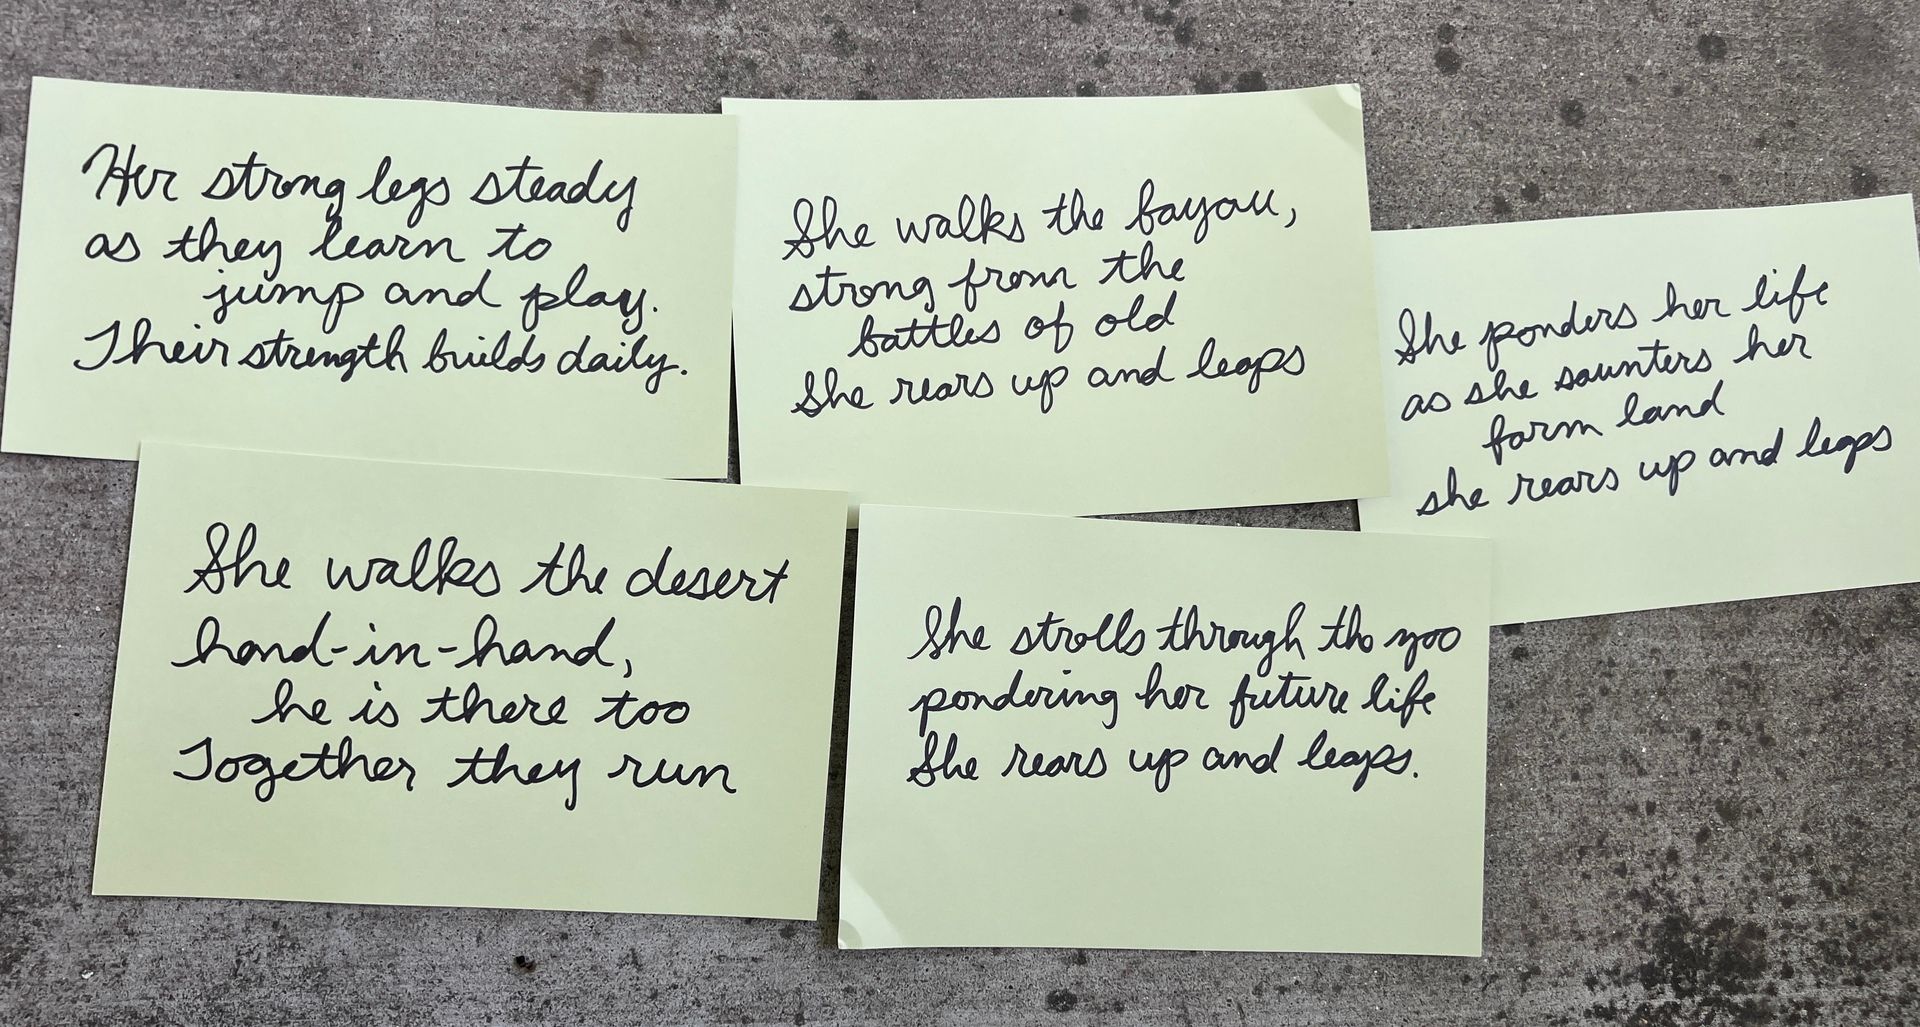 Her strong legs steady
as they learn to
jump and play.
Their strength builds daily.
She walks the bayou,
strong from the
battles of old
She rears up and leaps
She ponders her life
as she saunters her
farm land
she rears up and leaps
She walks the desert
hand-in-hand,
he is there too
Together they run
She strolls through the zoo
pondering her future life
She rears up and leaps.